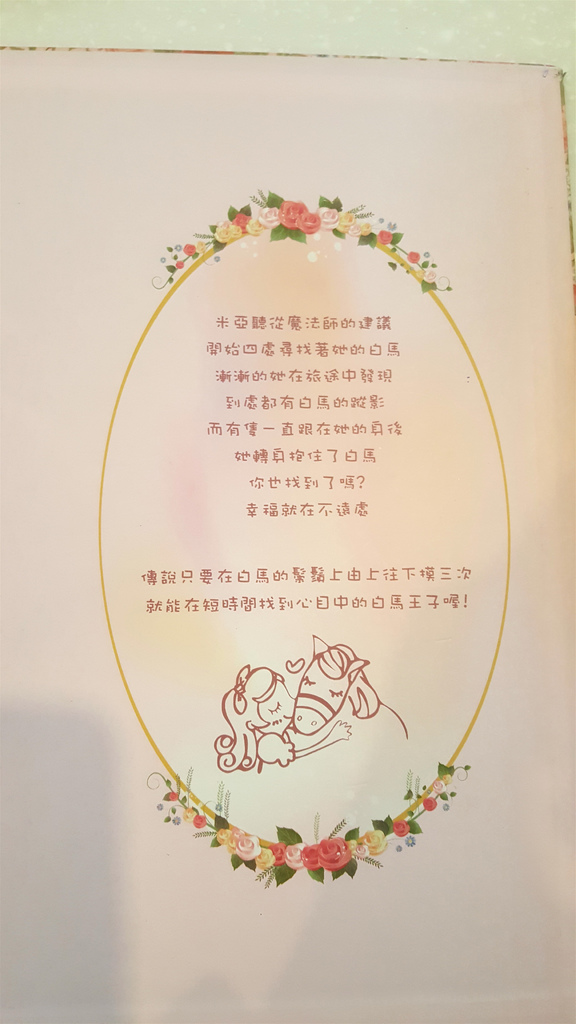 米亞聽從魔法師的建議
開始四處尋找著她的白馬
漸漸的她在旅途中發現
到處都有白馬的蹤影
而有隻一直跟在她的身後
她轉身抱住了白馬
你也找到了嗎?
幸福就在不遠處
傳說只要在白馬的鬃鬚上由上往下摸三次
就能在短時間找到心目中的白馬王子喔!